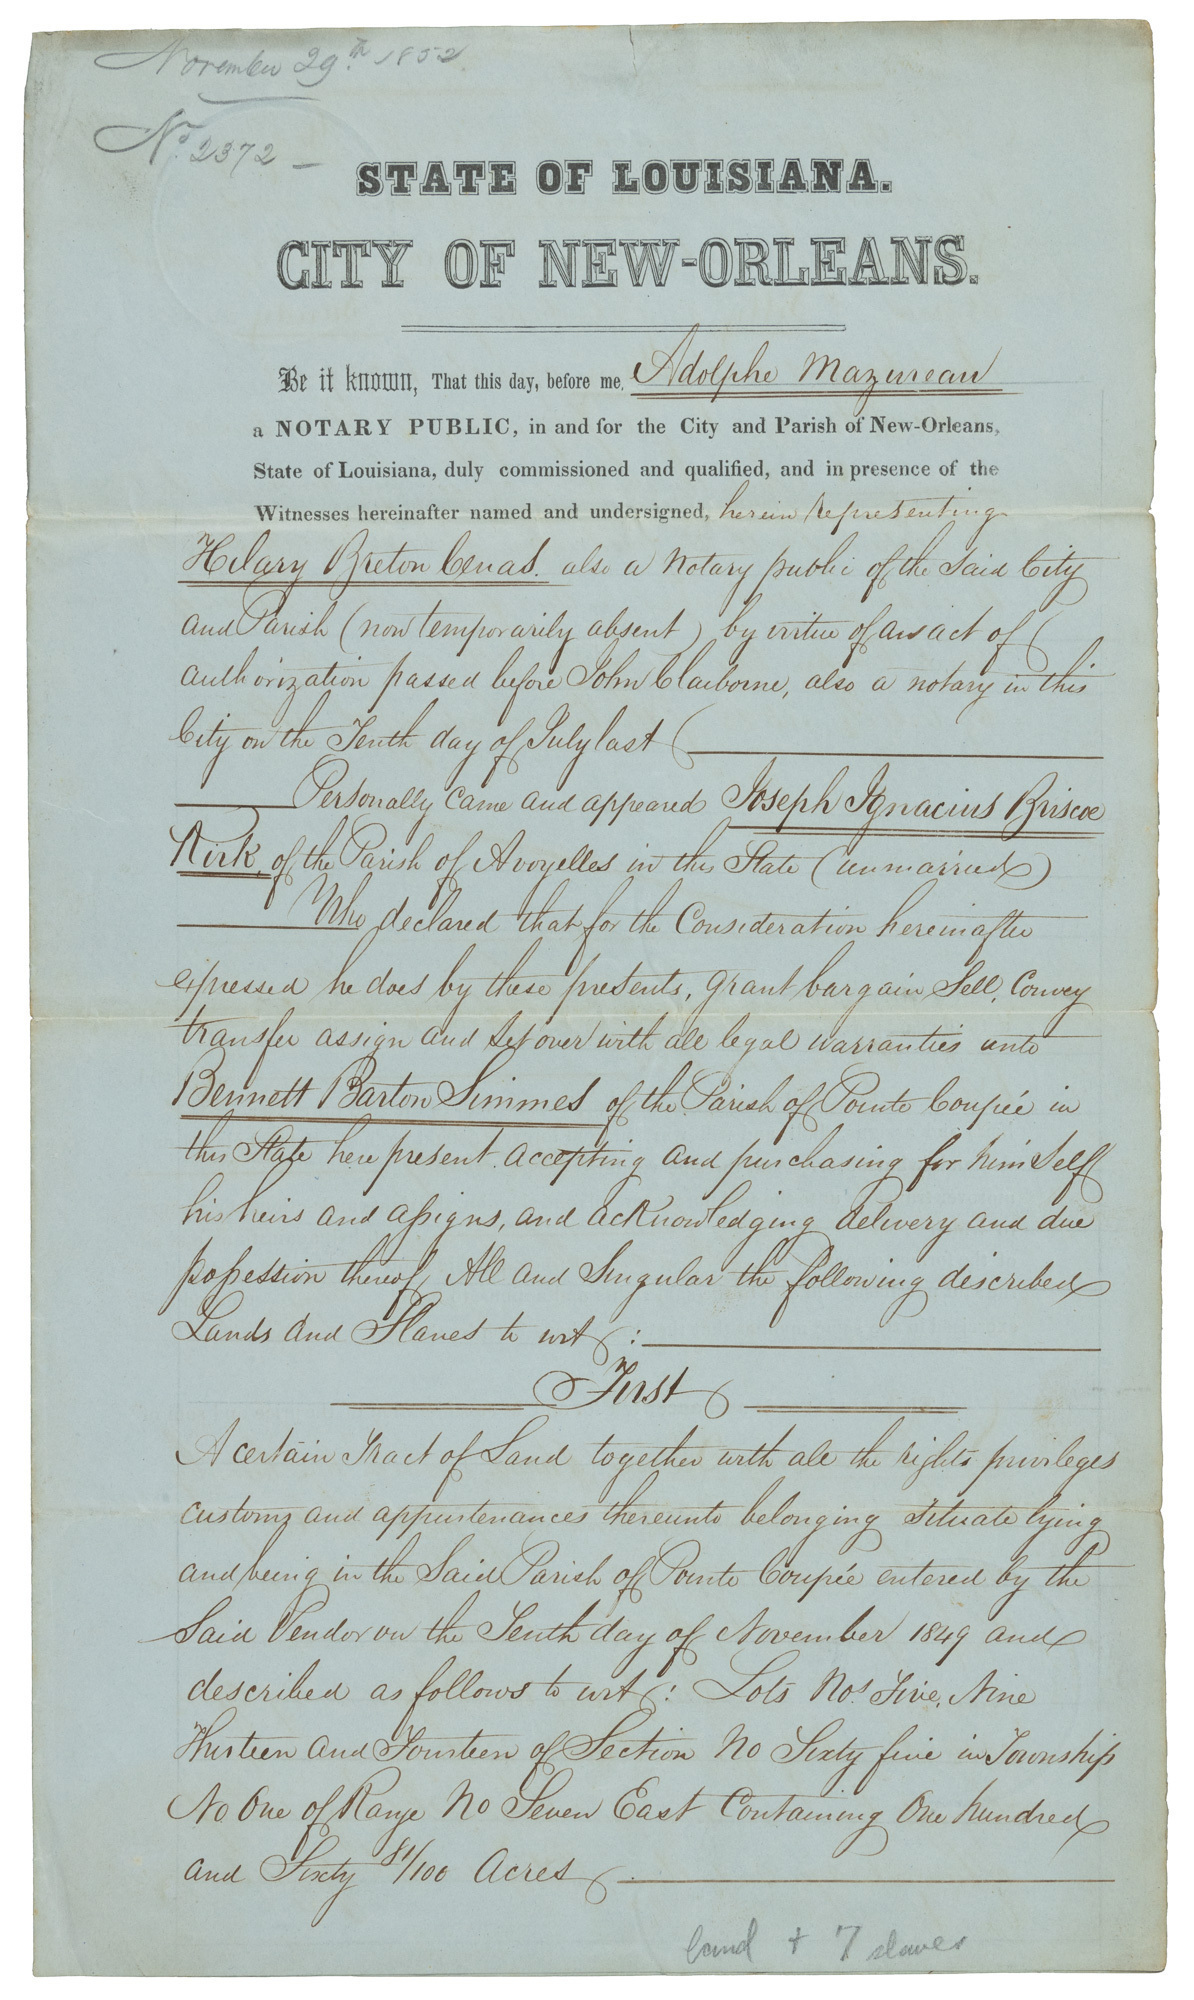 November 29th. 1852
No. 2372 —
STATE OF LOUISIANA.
CITY OF NEW-ORLEANS.
Be it known, That this day, before me, Adolphe Mazureau
a NOTARY PUBLIC, in and for the City and Parish of New-Orleans,
State of Louisiana, duly commissioned and qualified, and in presence of the
Witnesses hereinafter named and undersigned, herein representing
Hilary Breton Cenas. also a Notary public of the Said City
and Parish (now temporarily absent) by virtue of an act of
authorization passed before John Claiborne, also a notary in this
City on the Tenth day of July last
Personally came and appeared Joseph Ignacius Briscoe
Kirk, of the Parish of Avoyelles in this State (unmarried)
Who declared that for the Consideration hereinafter
expressed he does by these presents, grant bargain Sell, Convey
transfer assign and set over with all legal warranties unto
Bennett Barton Simmes of the Parish of Pointe Coupée in
this State here present accepting and purchasing for him Self
his heirs and assigns, and acknowledging delivery and due
possession thereof, All and Singular the following described
Lands and Slaves to wit :
First
A certain Tract of Land together with all the rights privileges
customs and appurtenances thereunto belonging Situate lying
and being in the Said Parish of Pointe Coupée entered by the
Said Vendor on the Tenth day of November 1849 and
described as follows to wit : Lots Nos. Five, Nine
Thirteen and Fourteen of Section No Sixty five in Township
No One of Range No Seven East Containing One hundred
and Sixty 81/100 Acres
land + 7 slaves